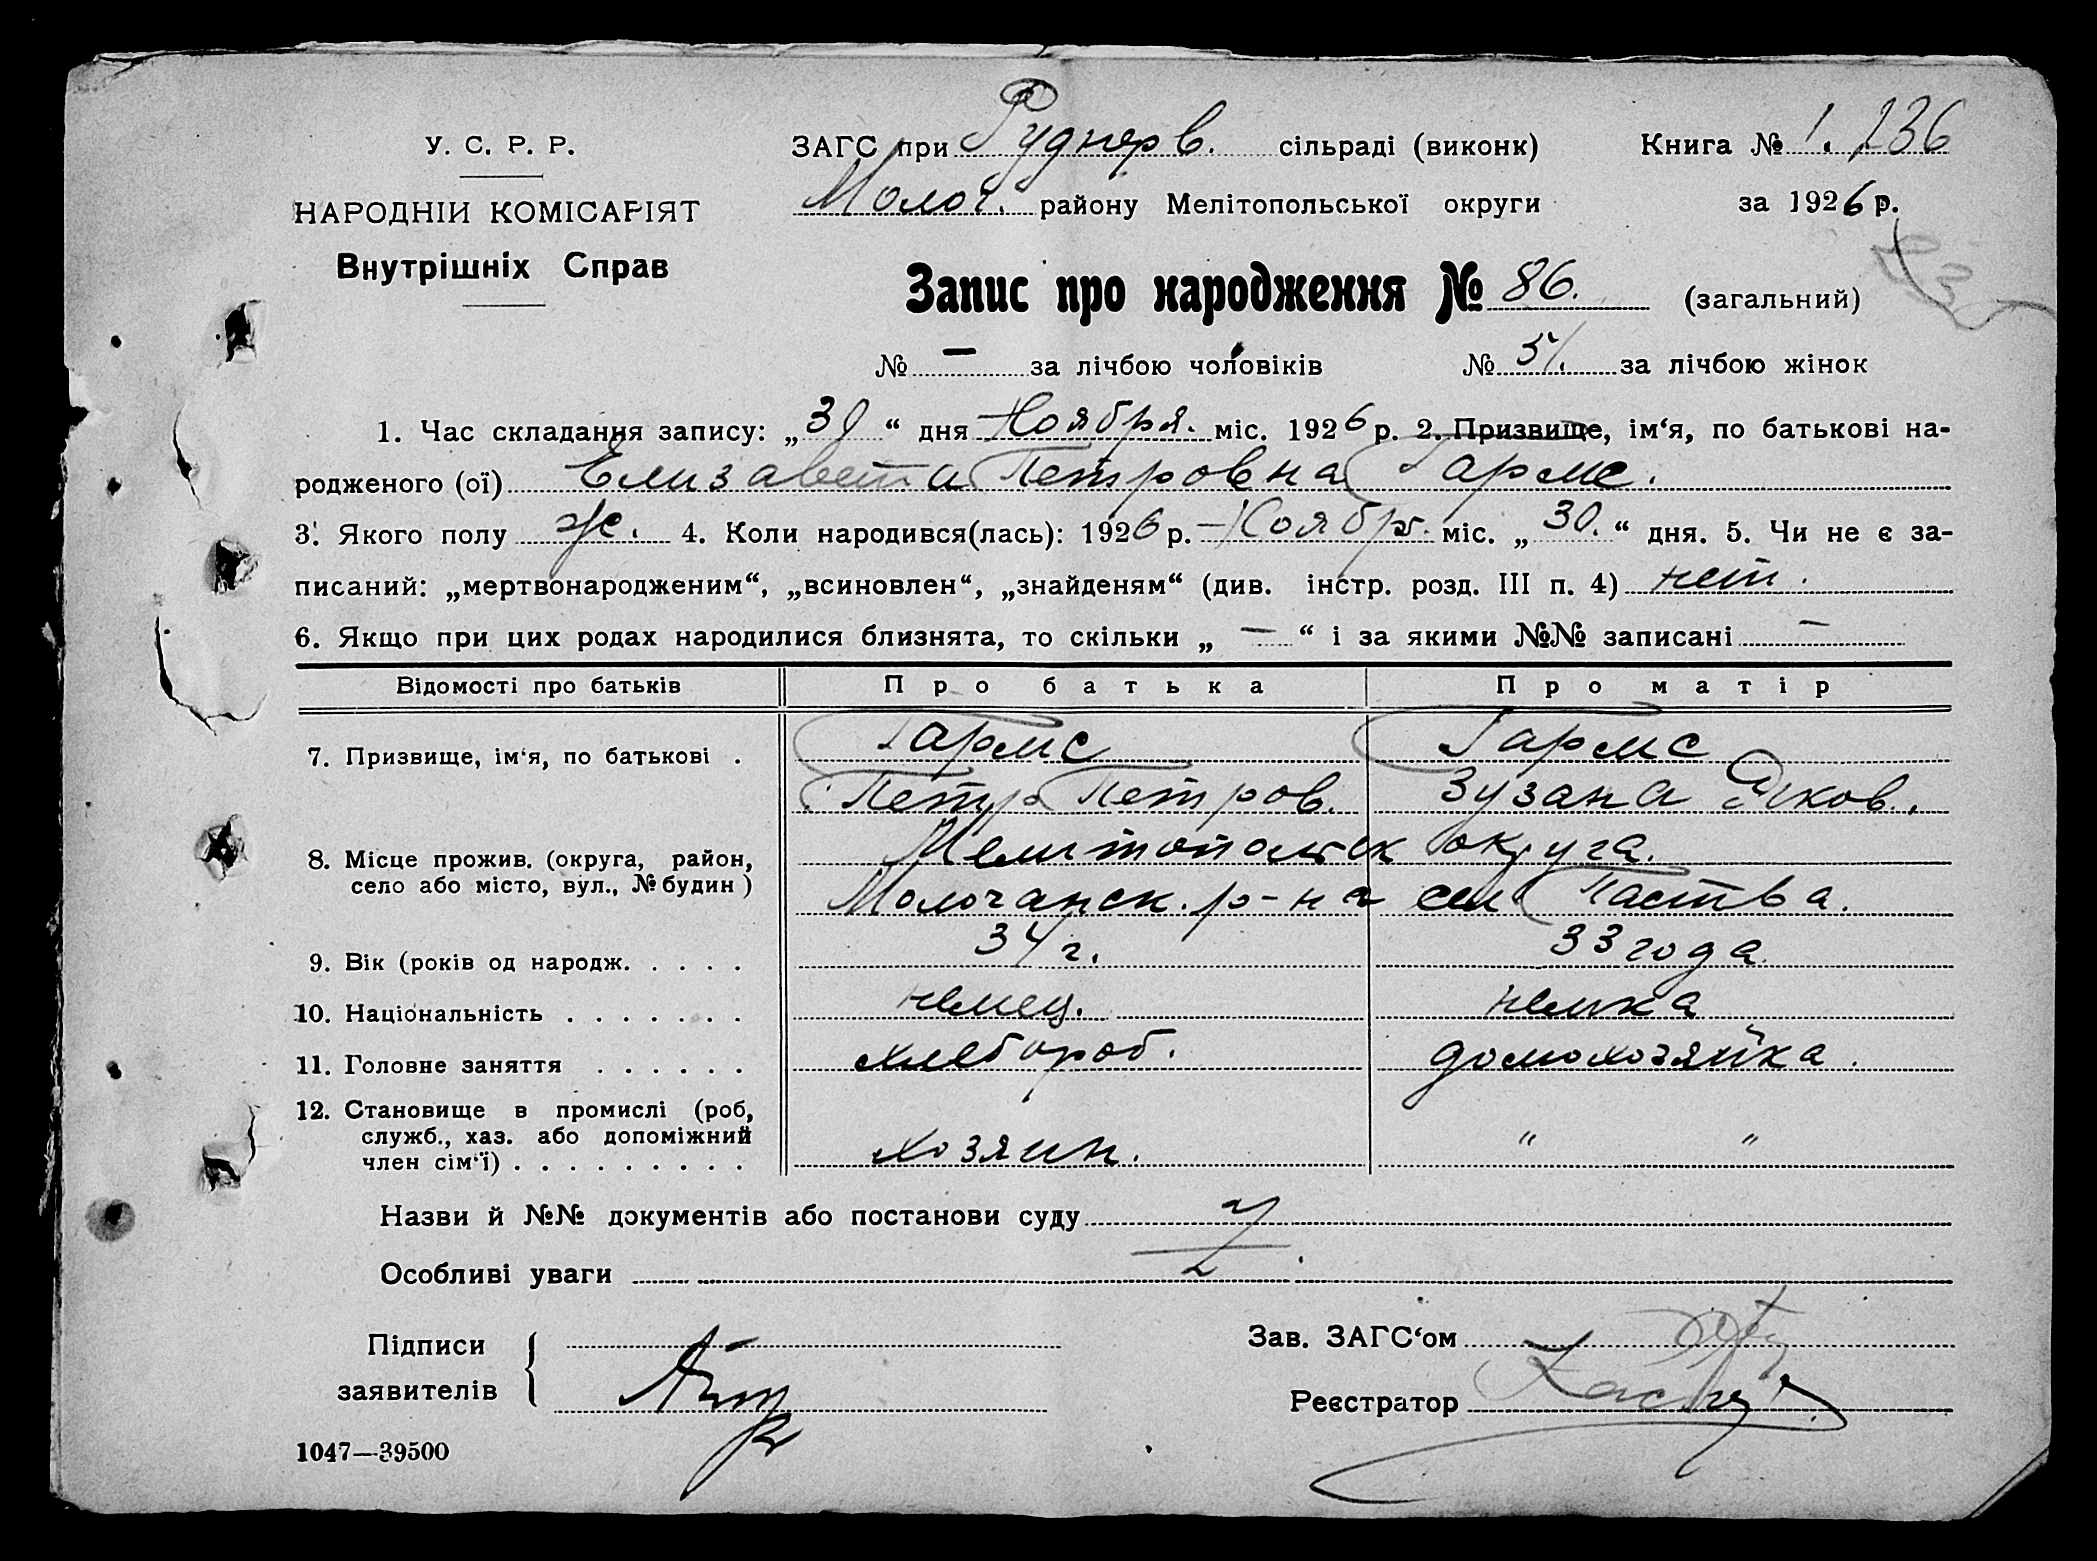 У. С. Р. Р.
НАРОДНІЙ КОМІСАРІЯТ
Внутрішніх Справ
ЗАГС при Руднерв. сільраді (виконк)
Молоч. району Мелітопольської округи
Книга № 1. 136
за 1926 р.
Запис про народження № 86. (загальний)
№ — за лічбою чоловіків № 51. за лічбою жінок
1. Час складання запису: „30“ дня Ноября. міс. 1926 р. 2. Призвище, ім‘я, по батькові на-
родженого (ої) Елизавета Петровна Гармс.
3. Якого полу ж. 4. Коли народився(лась): 1926 р. Ноябр. міс. „30.“ дня. 5. Чи не є за-
писаний: „мертвонародженим“, „всиновлен“, „знайденям“ (див. інстр. розд. III п. 4) нет.
6. Якщо при цих родах народилися близнята, то скільки „—“ і за якими №№ записані —
Відомості про батьків Про батька Про матір
7. Призвище, ім‘я, по батькові . Гармс Гармс
Петр Петров. Зузана Яков.
8. Місце прожив. (округа, район, Мелитопольск округа.
село або місто, вул., № будин) Молочанск. р-на сел Паства.
9. Вік (років од народж. . . . . 34 г. 33 года
10. Національність . . . . . . . немец. немка
11. Головне заняття . . . . . . хлебороб. домохозяйка.
12. Становище в промислі (роб,
служб., хаз. або допоміжний
член сім‘ї) . . . . . . . . . хозяин. " "
Назви й №№ документів або постанови суду
Особливі уваги
Підписи
заявителів
Зав. ЗАГС‘ом
Реєстратор
1047—39500